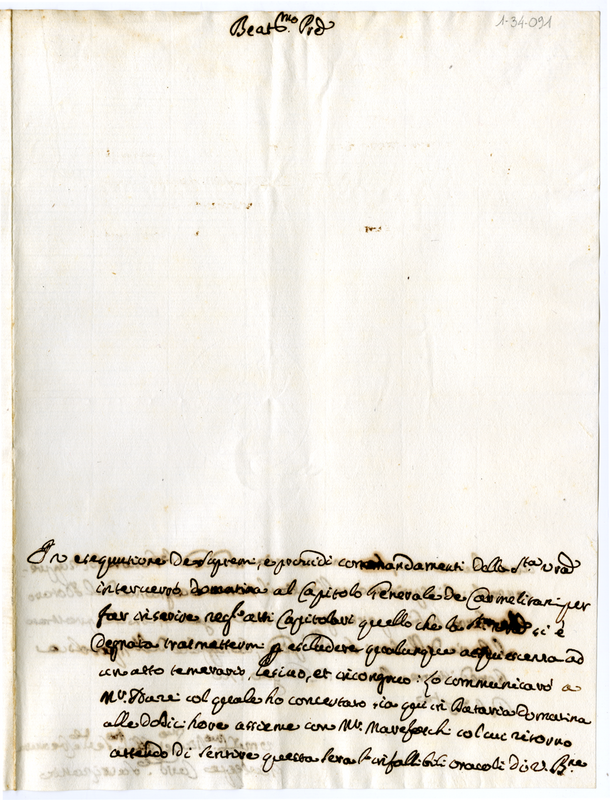 Beat.mo Prē
1-34-091
In esequutione de supremi, e providi commandamenti della S.tà vrā
interverrò domattina al Capitolo Generale de Carmelitani per
far inserire negl'atti Capitolari quello che la si è
degnata trasmettermi p escludere qualunque acquiescenza ad
un atto temerario, lesivo, et incongruo: Lo communicarò a
Mr. col quale ho concertato, sia qui in domatina
alle dodici hore assieme con Mr. Marefoschi col cui ritorno
attendo di sentire questa sera l'infallibili oracoli di V. Bne